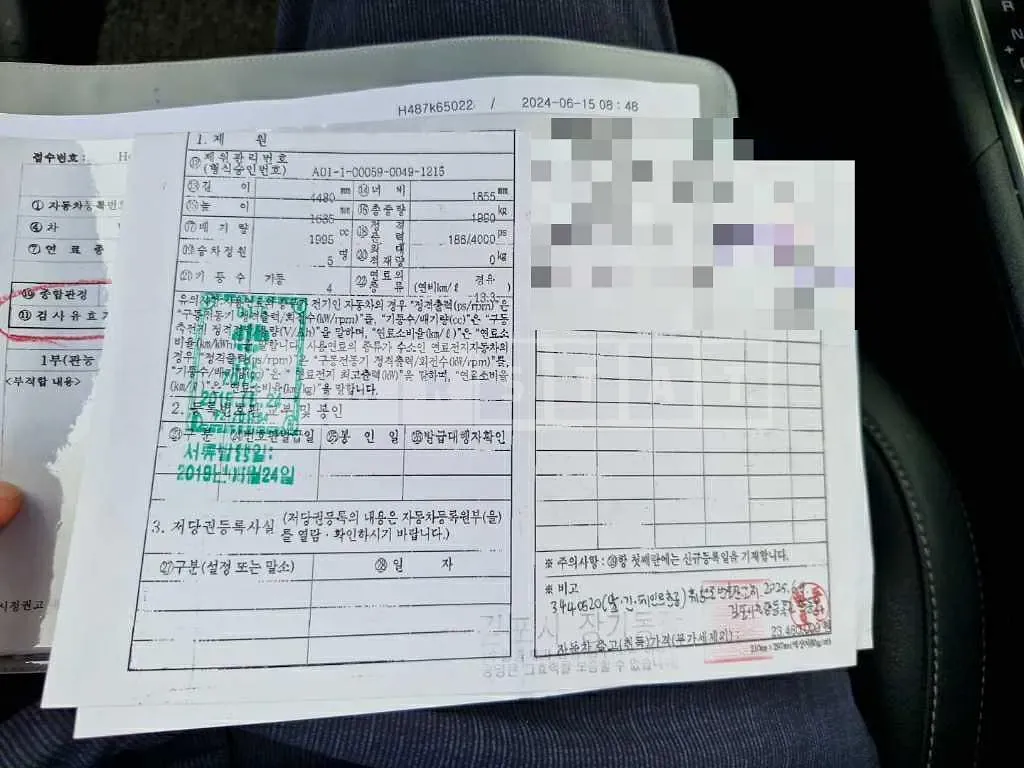 H487K65022 / 2024-06-15 08:48
접수번호 :
① 자동차등록번호
④ 차
⑦ 연 료 종
⑩ 종합판정
⑪ 검사유효기
1부(관능
<부적합 내용>
시정권고
1. 제 원
제원관리번호
(형식승인번호) A01-1-00059-0049-1215
길 이 4480 mm 너 비 1855 mm
높 이 1635 mm 총중량 1990 kg
배 기 량 1995 cc 정격출력 186/4000 ps
승차정원 5 명 최대적재량 0 kg
기 통 수 기통 4 연료의종류 경유
(연비km/ℓ) 13.3
유의사항: 사용연료의 종류가 전기인 자동차의 경우 "정격출력(ps/rpm)"은
"구동전동기 정격출력/회전수(kW/rpm)"를, "기통수/배기량(cc)"은 "구동
축전지 정격전압/용량(V/Ah)"을 말하며, "연료소비율(km/ℓ)"은 "연료소
비율(km/kWh)"을 말합니다. 사용연료의 종류가 수소인 연료전지자동차의
경우 "정격출력(ps/rpm)"은 "구동전동기 정격출력/회전수(kW/rpm)"를,
"기통수/배기량(cc)"은 "연료전지 최고출력(kW)"을 말하며, "연료소비율
(km/ℓ)"은 "연료소비율(km/kg)"을 말합니다.
2. 등록번호판 교부 및 봉인
구 분 번호판발급일 봉 인 일 발급대행자확인
서류발행일:
2019년 11월24일
3. 저당권등록사실 (저당권등록의 내용은 자동차등록원부(을)
를 열람·확인하시기 바랍니다.)
㉗구분(설정 또는 말소) ㉘일 자
※ 주의사항 : 항 첫째란에는 신규등록일을 기재합니다.
※ 비고
자동차 출고(취득)가격(부가세제외) :
210mm×297mm
김포시 장기동